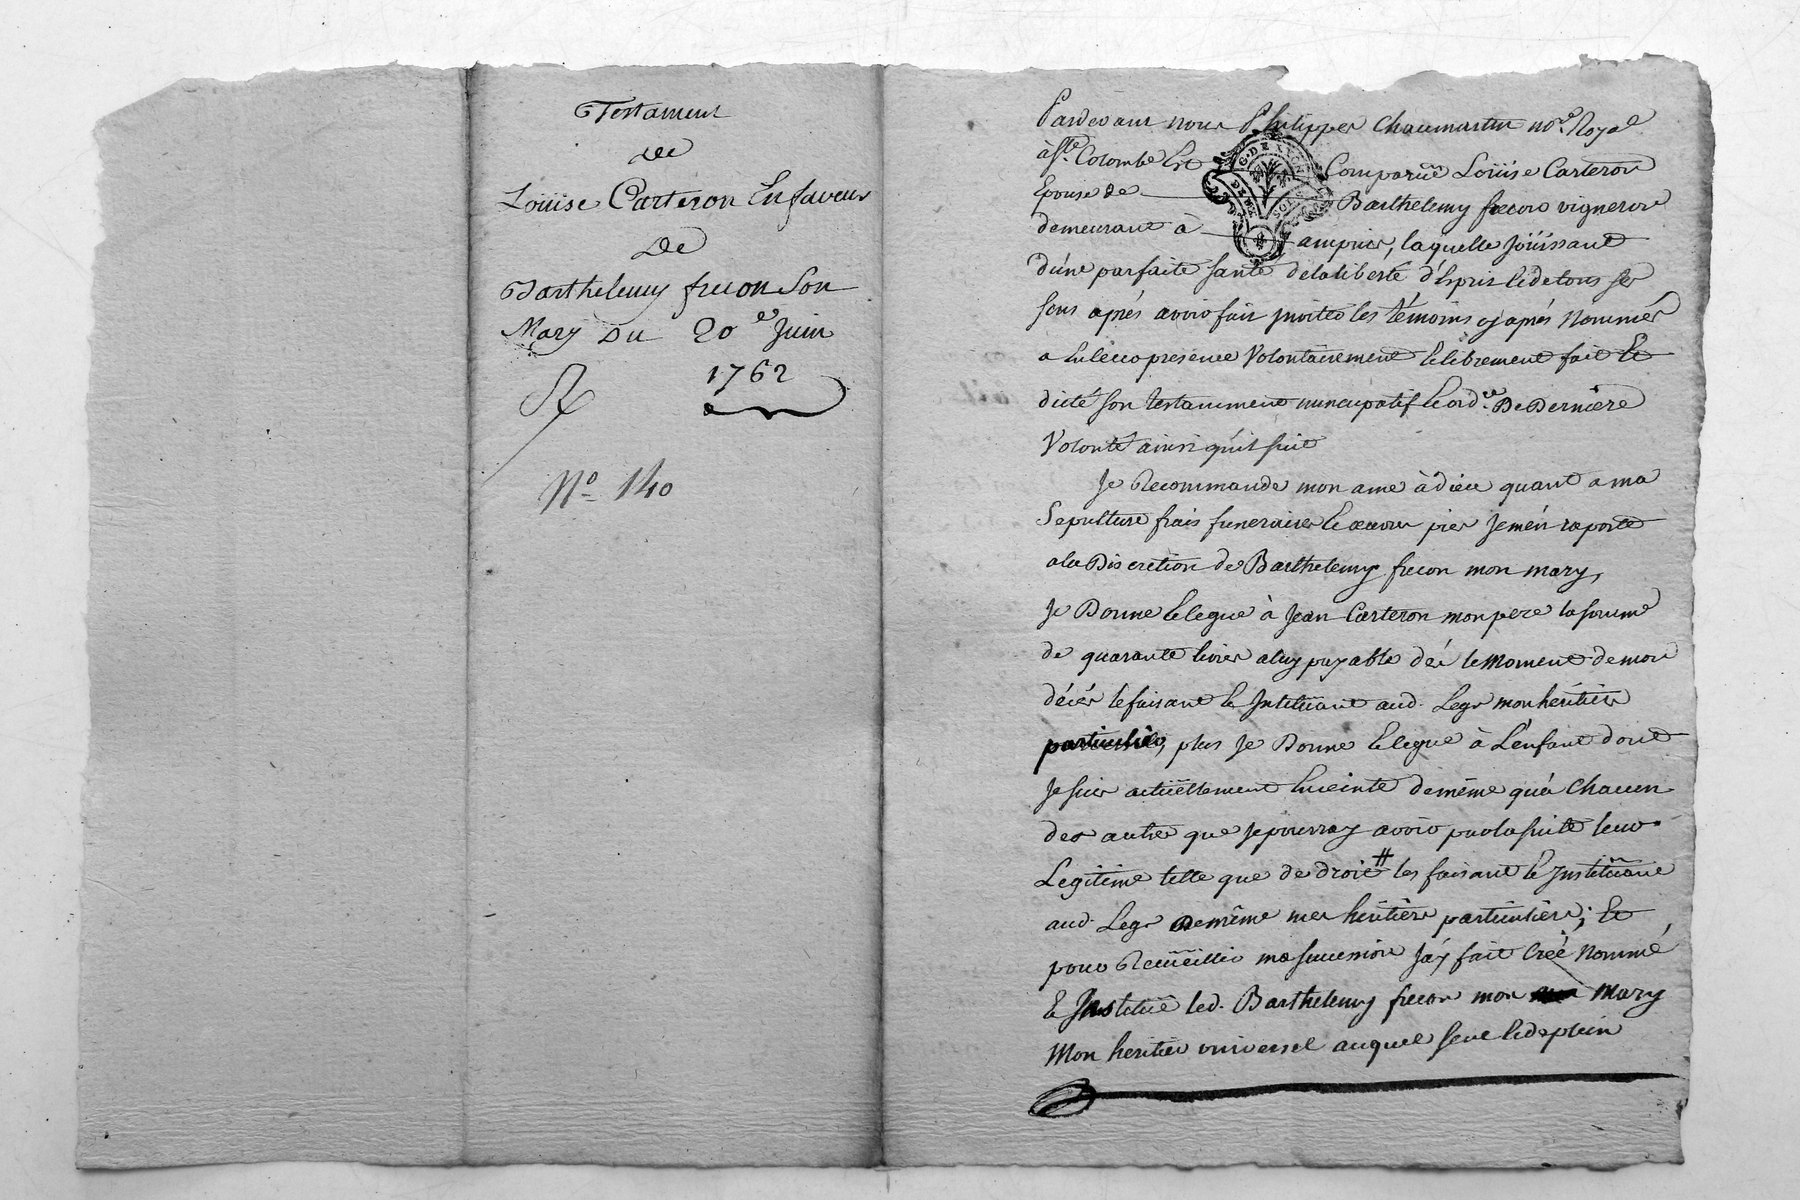 Testament
de
Loüise Carteron En faveur
De
Barthelemy frecon Son
Mary Du 20e Juin
1762
No 140
Pardevant nous Philippes Chaumartin nore Royal
à Ste Colombe Est Comparüe Loüise Carteron
Epouse de Barthelemy frecon vigneron
demeurant à ampuis, laquelle Joüissant
d'une parfaite santé de la liberté d'Esprit Et de tous ses
sens aprés avoir fait inviter les témoins cy aprés Nommés
a Eu leur presence Volontairement Et librement fait Et
dicté son testamment nuncupatif Et ordce De Derniere
Volonté ainsi qu'il suit
Je Recommande mon ame à dieu quant a ma
Sepulture frais funeraires Et œuvres pies Je m'en raporte
a la Discretion de Barthelemy frecon mon mary,
Je Donne Et legue à Jean Carteron mon pere la somme
de quarante livres a luy payable dés le Moment de mon
décés le faisant Et Instituant aud. Legs mon héritier
particulier, plus Je Donne Et legue à L'enfant dont
Je suis actüellement Enceinte de même qu'a Chacun
des autres que Je pourray avoir par la suite leur
Legitime telle que de droit # les faisant Et Instituant
aud. Legs De même mes héritiers particuliers; Et
pour Recüeillir ma succession J'ay fait Créé Nommé
Et Institué led. Barthelemy frecon mon Mary
Mon heritier universel auquel seul Et de plein